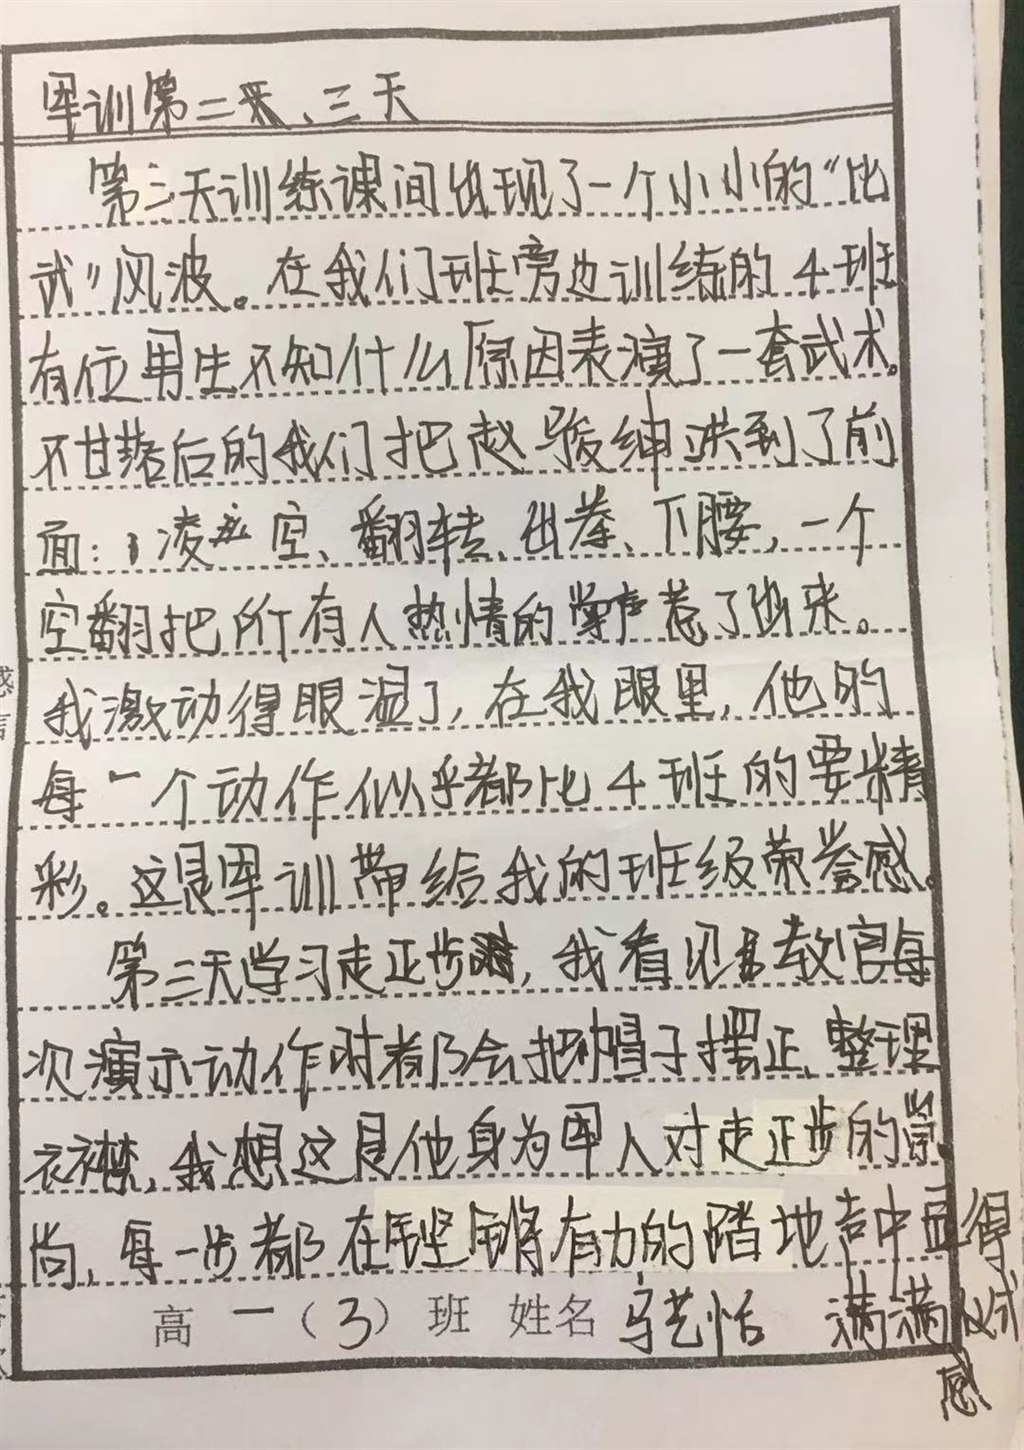 军训第二天、三天
第二天训练课间出现了一个小小的“比
武”风波。在我们班旁边训练的4班
有位男生不知什么原因表演了一套武术。
不甘落后的我们把赵骏绅哄到了前
面：凌空、翻转、出拳、下腰，一个
空翻把所有人热情的掌声惹了出来。
我激动得眼湿了，在我眼里，他的
每一个动作似乎都比4班的要精
彩。这是军训带给我的班级荣誉感。
第三天学习走正步，我看见教官每
次演示动作时都会把帽子摆正、整理
衣襟，我想这是他身为军人对走正步的崇
尚，每一步都在铿锵有力的踏地声中显得
满满仪式
感
高一（3）班 姓名 马艺恬